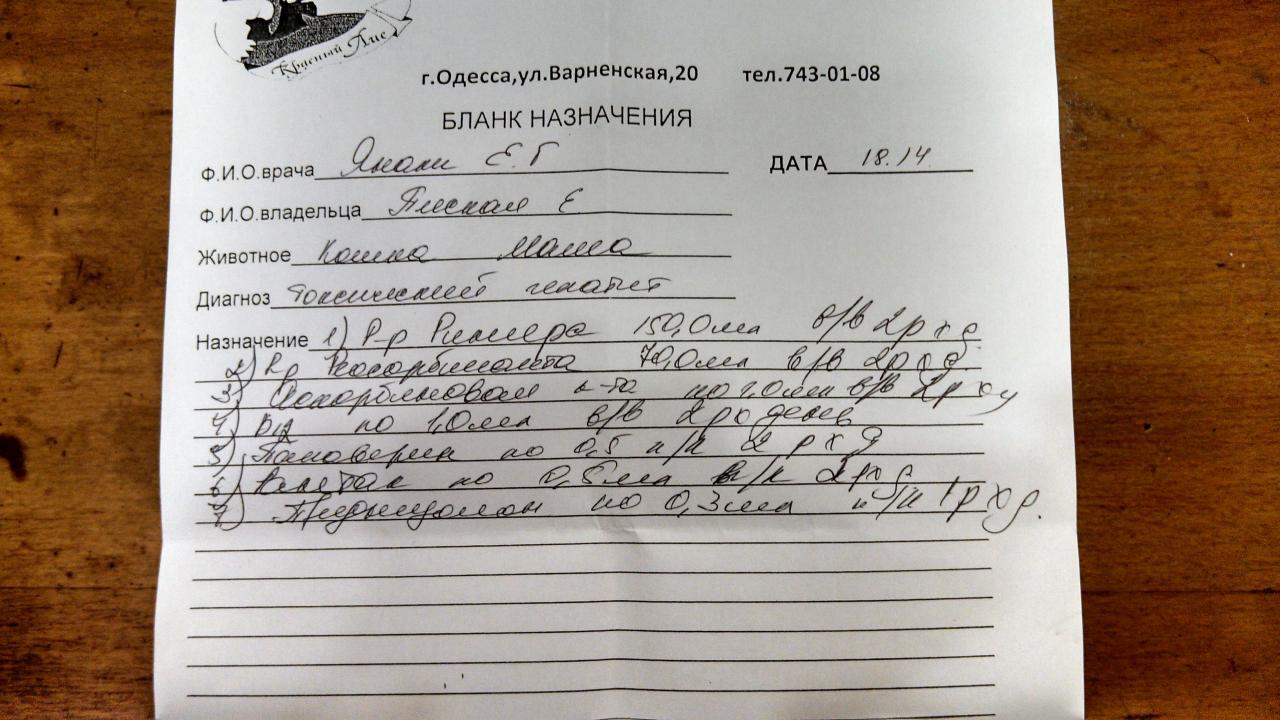 Красный Лис
г.Одесса,ул.Варненская,20 тел.743-01-08
БЛАНК НАЗНАЧЕНИЯ
Ф.И.О.врача Е.Г ДАТА 18.14
Ф.И.О.владельца Е
Животное Кошка Маша
Диагноз токсический гепатит
Назначение 1) Р-р Рингера 150,0мл в/в 2р х д
2) Р-р 70,0мл в/в 2р х д
3) Аскорбиновая к-та по 1,0мл в/в 2р х д
4) B12 по 1,0мл в/в 2р х день
5) Папаверин по 0,5 п/к 2 р х д
6) по 0,5мл 2рхд
7) Преднизолон по 0,3мл п/к 1р х д.